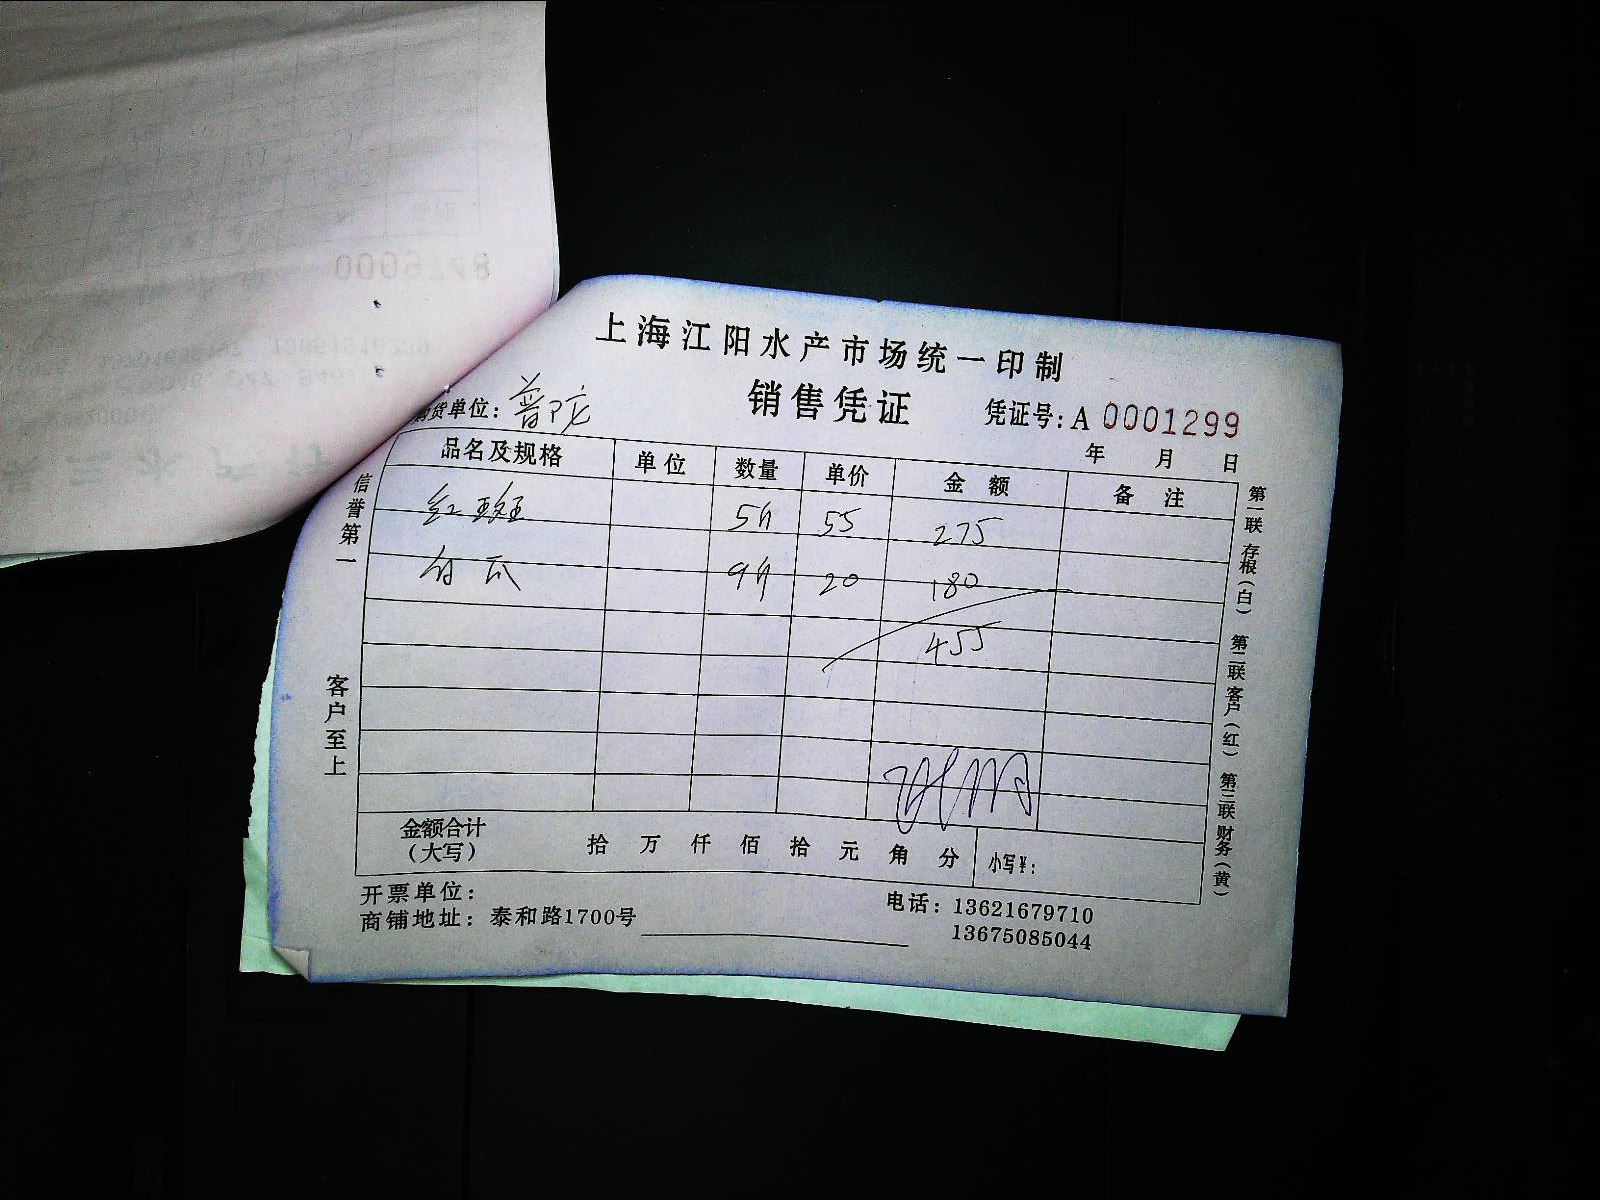 上海江阳水产市场统一印制
销售凭证
购货单位：普陀
凭证号：A 0001299
年 月 日
品名及规格 单位 数量 单价 金额 备注
红斑 5斤 55 275
白瓜 9斤 20 180
455
金额合计（大写） 拾 万 仟 佰 拾 元 角 分 小写￥：
开票单位：
商铺地址：泰和路1700号
电话：13621679710
13675085044
信誉第一
客户至上
第一联 存根（白） 第二联 客户（红） 第三联 财务（黄）